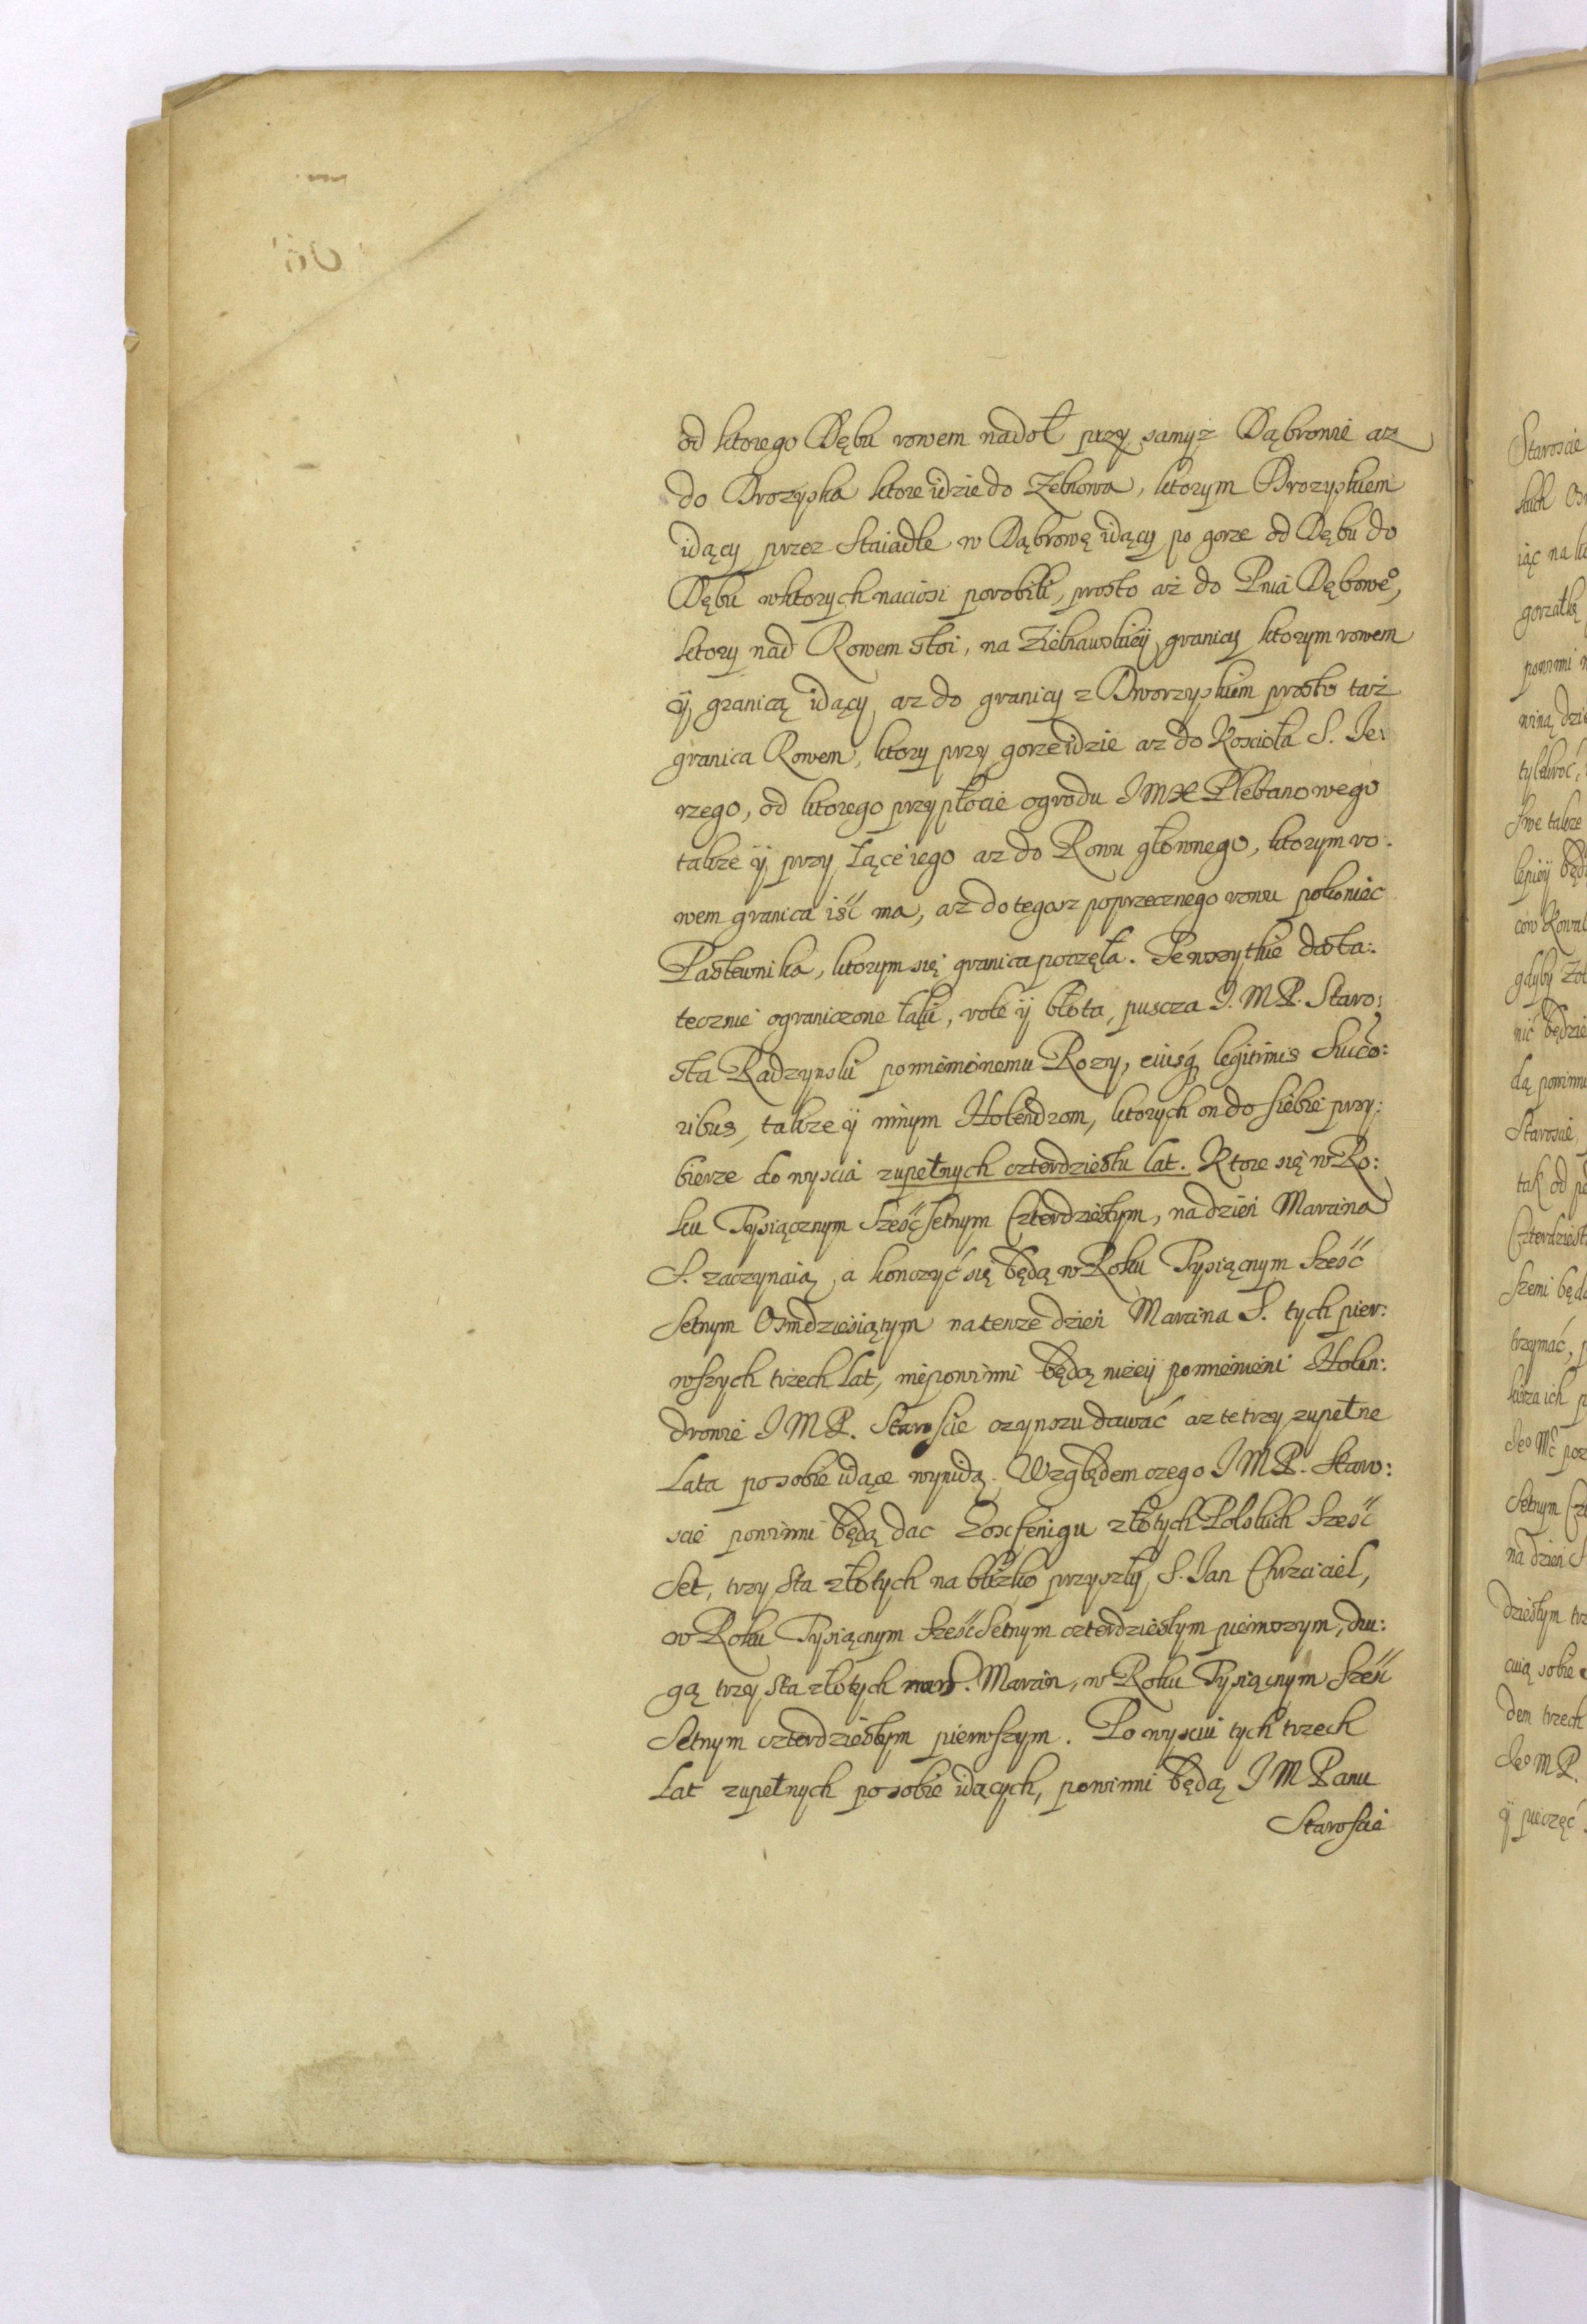 od ktorego Dębu rowem nadoł przy samyż Dąbrowie aż
do Drozyska ktore idzie do Zebrowa, ktorym Drozyskiem
idący przez Staiadle w Dąbrowę idący po gorze od Dębu do
Dębu wktorych naciosi porobili, prosto aż do Pnia Dębowe°,
ktory nad Rowem stoi, na granicy ktorym rowem
ÿ granicą idący az do granicy z Dworzyskiem prosto taż
granica Rowem, ktory przy gorze idzie az do Koscioła S. Ie:
rzego, od ktorego przypłocie ogrodu IMX Plebanowego
takze ÿ przy Łące iego az do Rowu głownego, ktorym ro:
wem granica iść ma, aż do tegosz poprzecznego rowu pokoniec
Pastewnika, ktorym się granica poczęła. Te wszytkie dosta:
tecznie ograniczone łąki, role ÿ błota, puscza I. M P. Staro:
sta Radzynski pomienionemu Rozy, eiusq legitimis Succo:
ribus, takze ÿ innym Holendrom, ktorych on do siebie przy:
bierze do wyscia zupełnych czterdziestu lat. Ktore się w Ro:
ku Tysiącznym Sześćsetnym Czterdziestym, na dzień Marcina
S. zaczynaią, a konczyć się będą w Roku Tysiącnym Sześć
Setnym Osmdziesiątym na tenze dzień Marcina S. tych pier:
wszych trzech Lat, niepowinni będą niżeÿ pomienieni Holen:
drowie I M P. Staroscie czynszu dawać az te trzy zupełne
Lata po sobie idące wynidą. Względem czego I M P. Staro:
scie powinni będą dac Loxfenigu złotych Polskich Sześć
Set, trzy sta złotych na blizko przyszły S. Ian Chrzciciel,
w Roku Tysiącnym Sześćsetnym czterdziestym pierwszym, dru:
gą trzy sta złotych na S. Marcin, w Roku Tysiącnym Sześć
Setnym czterdziestym pierwszym. Po wysciu tych trzech
Lat zupełnych po sobie idących, powinni będą I M Panu
Staroscie
Staroscie
iąc na
gorzałkę
powinni
winą
tylekroć,
Swe takze
lepieÿ
cow
gdyby
nic będzie
dą powinni
Staroscie,
tak od
Czterdziest
Szemi będą
trzymać,
ich
poz
Setnym
na dzień S
dziestym
sobie
dem trzech
M P.
ÿ pieczęć